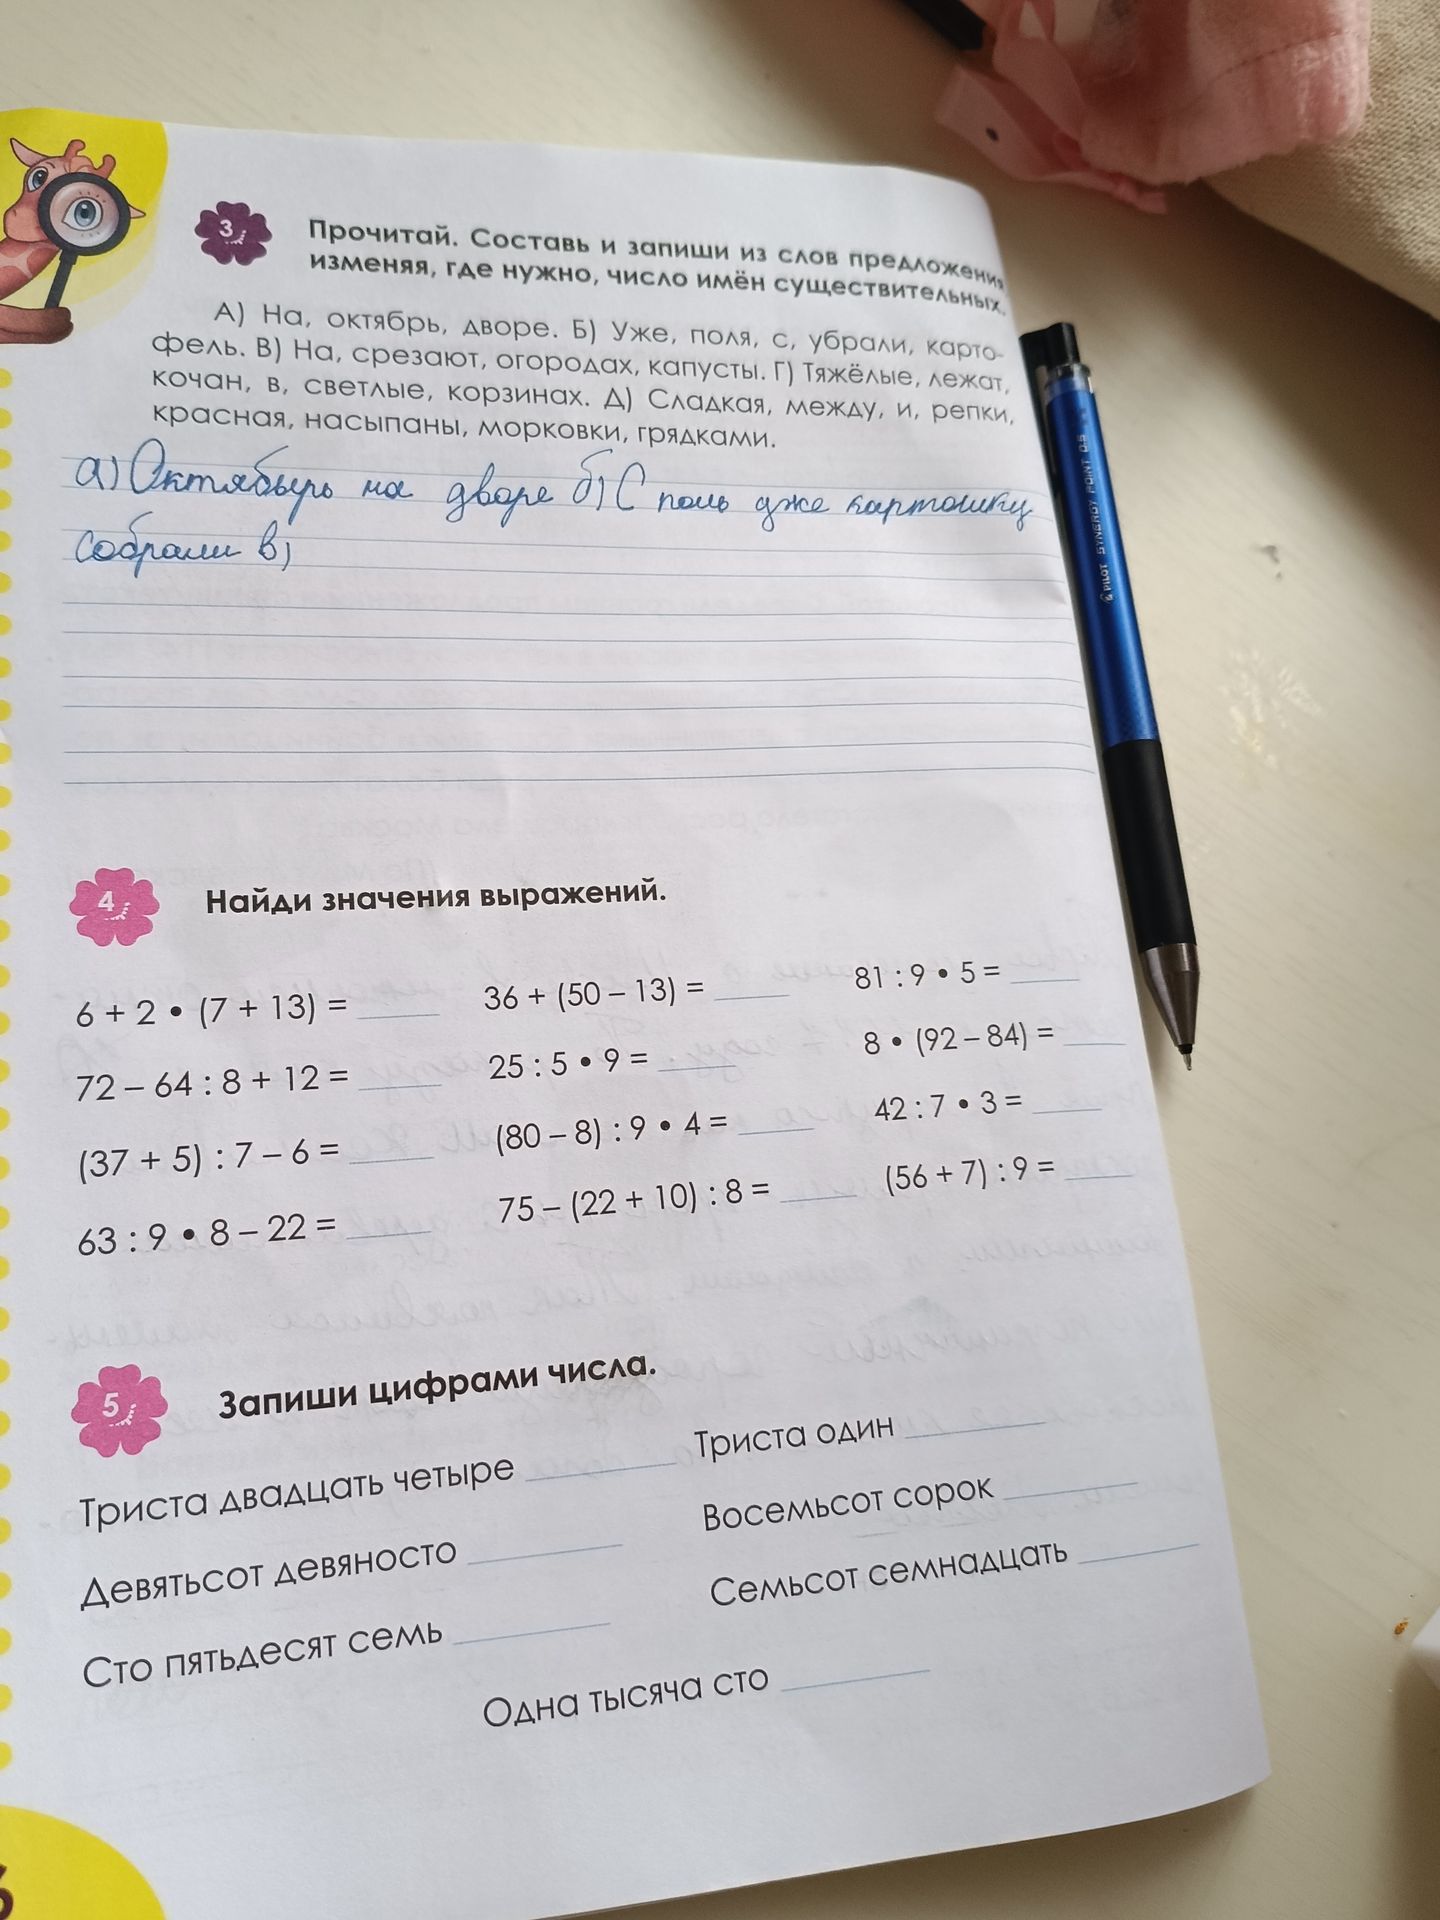 3
Прочитай. Составь и запиши из слов предложения
изменяя, где нужно, число имён существительных.
А) На, октябрь, дворе. Б) Уже, поля, с, убрали, карто-
фель. В) На, срезают, огородах, капусты. Г) Тяжёлые, лежат,
кочан, в, светлые, корзинах. Д) Сладкая, между, и, репки,
красная, насыпаны, морковки, грядками.
а) Октябырь на дворе б) С поль уже картошку
собрали в)
4
Найди значения выражений.
6 + 2 • (7 + 13) = ____ 36 + (50 – 13) = ____ 81 : 9 • 5 = ____
72 – 64 : 8 + 12 = ____ 25 : 5 • 9 = ____ 8 • (92 – 84) = ____
(37 + 5) : 7 – 6 = ____ (80 – 8) : 9 • 4 = ____ 42 : 7 • 3 = ____
63 : 9 • 8 – 22 = ____ 75 – (22 + 10) : 8 = ____ (56 + 7) : 9 = ____
5
Запиши цифрами числа.
Триста двадцать четыре ____ Триста один ____
Девятьсот девяносто ____ Восемьсот сорок ____
Сто пятьдесят семь ____ Семьсот семнадцать ____
Одна тысяча сто ____
PILOT SYNERGY POINT 0.5